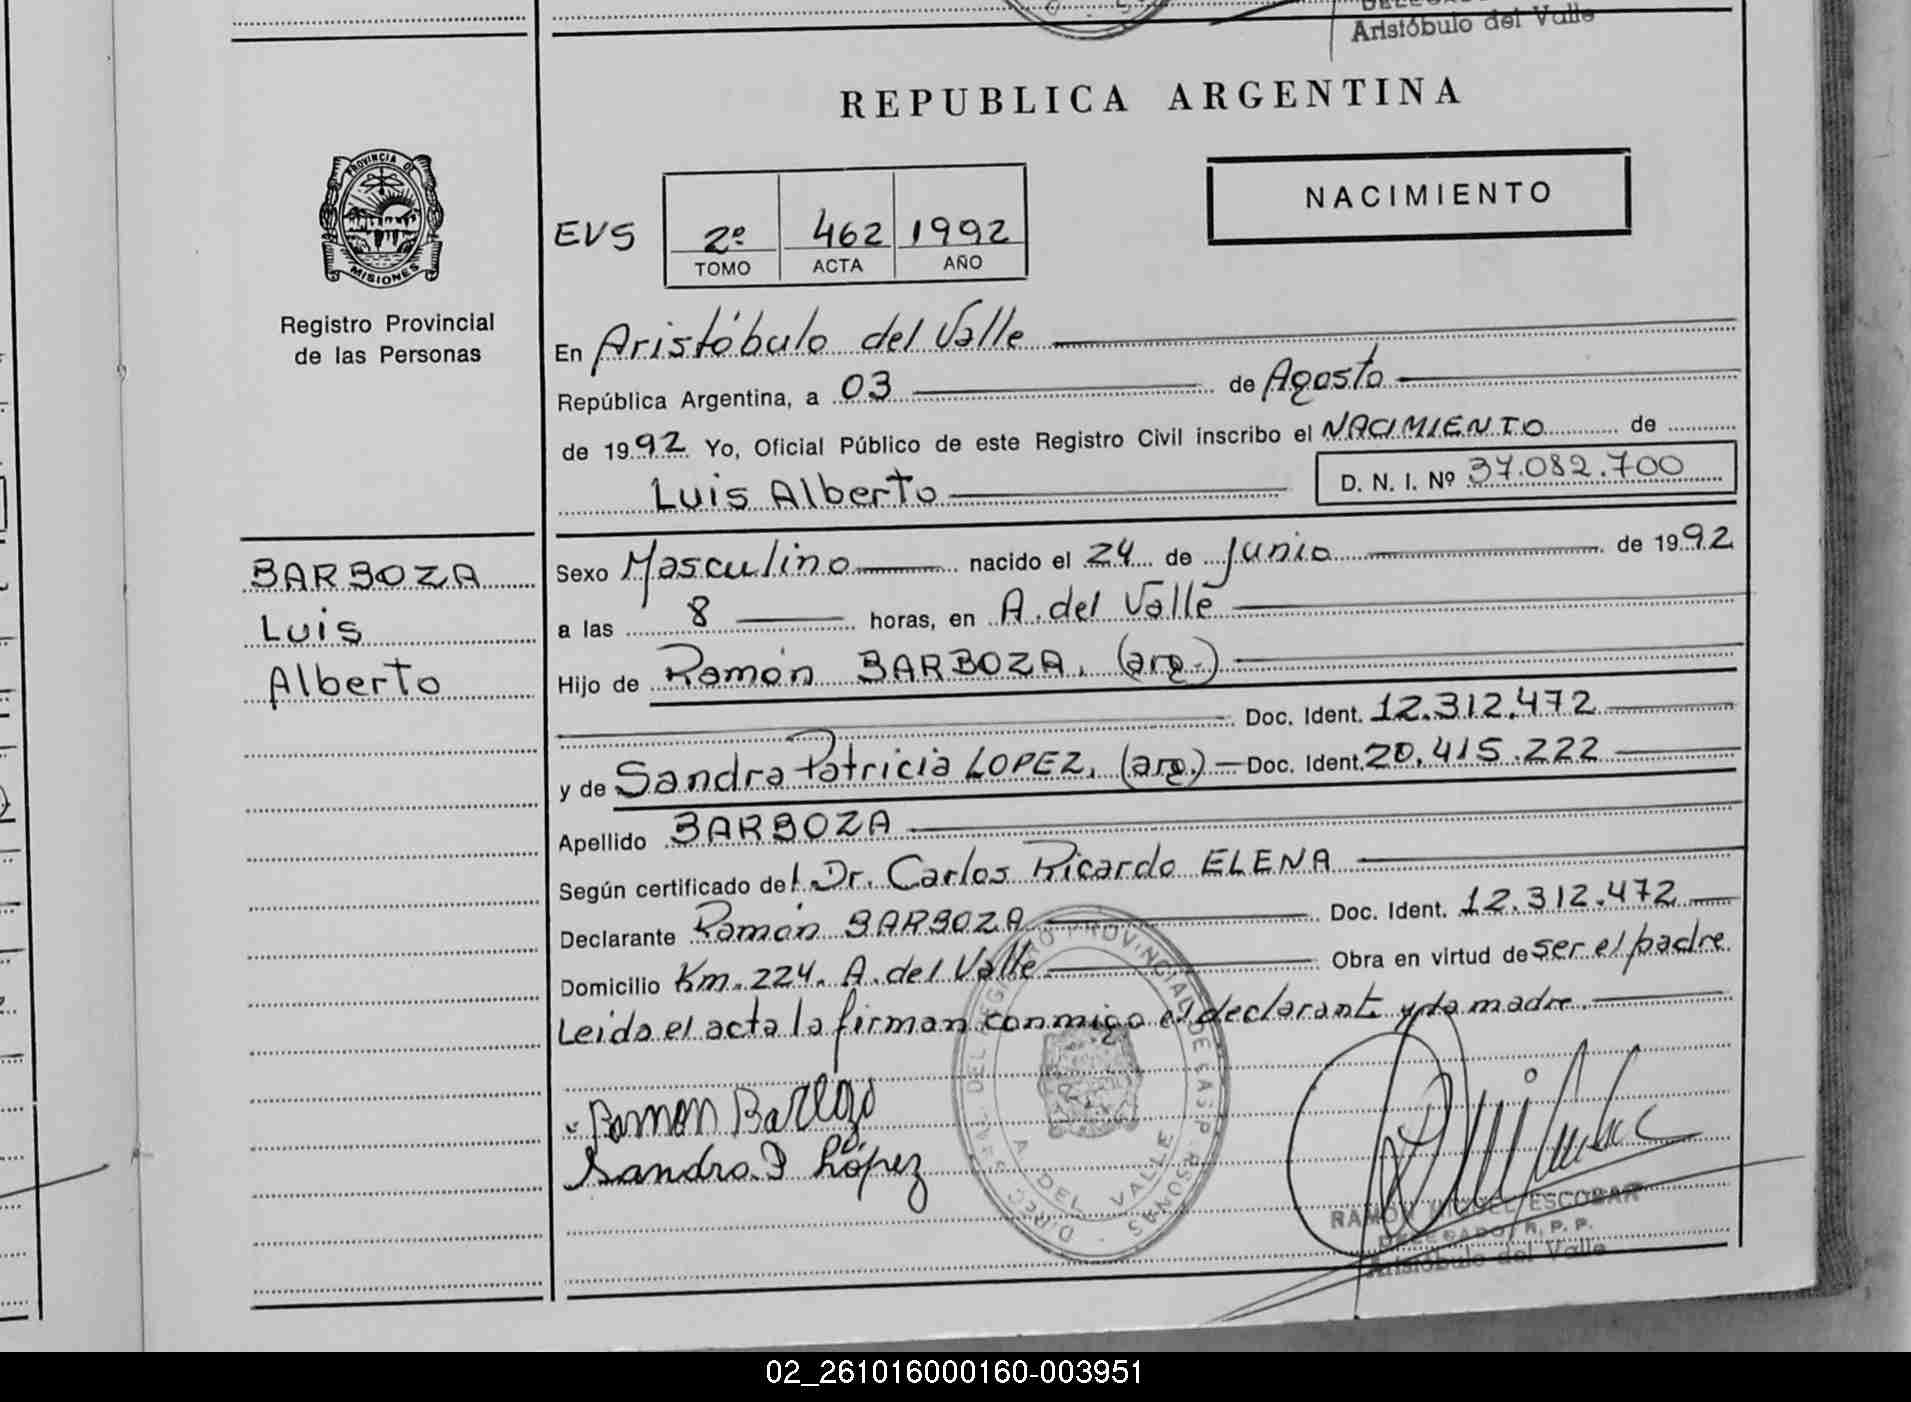 Aristóbulo del Valle
REPUBLICA ARGENTINA
NACIMIENTO
PROVINCIA DE
MISIONES
Registro Provincial
de las Personas
EVS 2º 462 1992
TOMO ACTA AÑO
En Aristóbulo del Valle
República Argentina, a 03 de Agosto
de 1992 Yo, Oficial Público de este Registro Civil inscribo el NACIMIENTO de
Luis Alberto D. N. I. Nº 37.082.700
BARBOZA
Luis
Alberto
Sexo Masculino nacido el 24 de Junio de 1992
a las 8 horas, en A. del Valle
Hijo de Ramón BARBOZA, (arg.)
Doc. Ident. 12.312.472
y de Sandra Patricia LOPEZ, (arg.) Doc. Ident. 20.415.222
Apellido BARBOZA
Según certificado del Dr. Carlos Ricardo ELENA
Declarante Ramón BARBOZA Doc. Ident. 12.312.472
Domicilio Km. 224. A. del Valle Obra en virtud de ser el padre
Leida el acta la firman conmigo el declarante y la madre.
Ramon Barboza
Sandra P López
A. DEL VALLE
RAMON MIGUEL ESCOBAR
DELEGADO R. P. P.
Aristóbulo del Valle
02_261016000160-003951